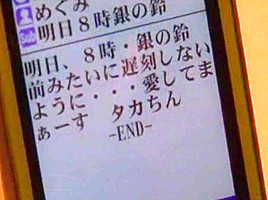 めぐみ
明日8時銀の鈴
明日、8時・銀の鈴
前みたいに遅刻しない
ように・・・愛してま
ぁーす　タカちん
-END-